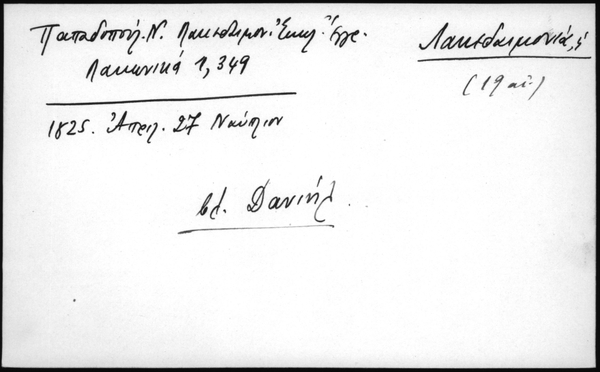 Παπαδοπούλ. Ν. Λακεδαιμον. Ἐκκλ. Ἔγγρ.
Λακωνικά 1, 349
Λακεδαιμονιά, ἡ
(19 αἰ.)
1825. Ἀπριλ. 27 Ναύπλιον
βλ. Δανιήλ.